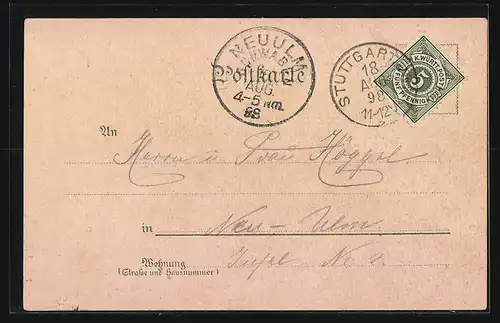 NEUULM
(SCHWABEN)
AUG.
4-5 NM.
98
Postkarte
STUTTGART
18
AUG
98
11-12V
K. WÜRTT. POST
5
PFENNIG
An Herrn u Frau Höggel
in Neu-Ulm.
Wohnung Insel No
(Straße und Hausnummer)